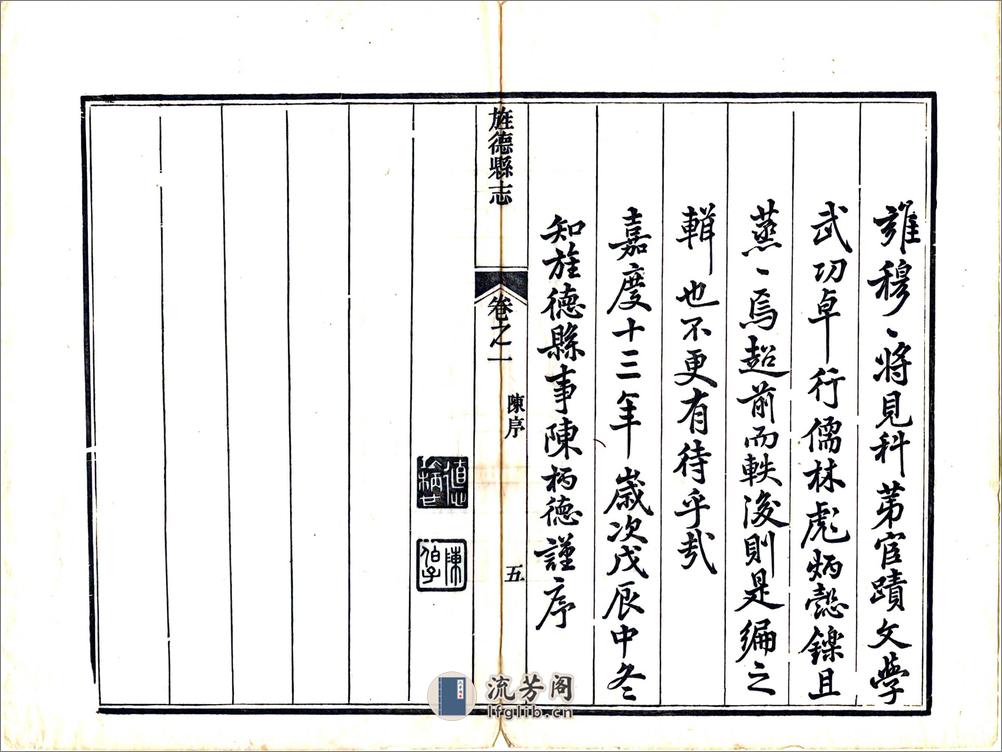 雍穆〻將見科苐宦蹟文學
武功卓行儒林彪炳懿鑠且
蒸〻焉超前而軼後則是編之
輯也不更有待乎哉
嘉慶十三年歲次戊辰中冬
知旌德縣事陳柄德謹序
旌德縣志
卷之一
陳序
五
陳
伯子
流芳阁
lfglib.cn